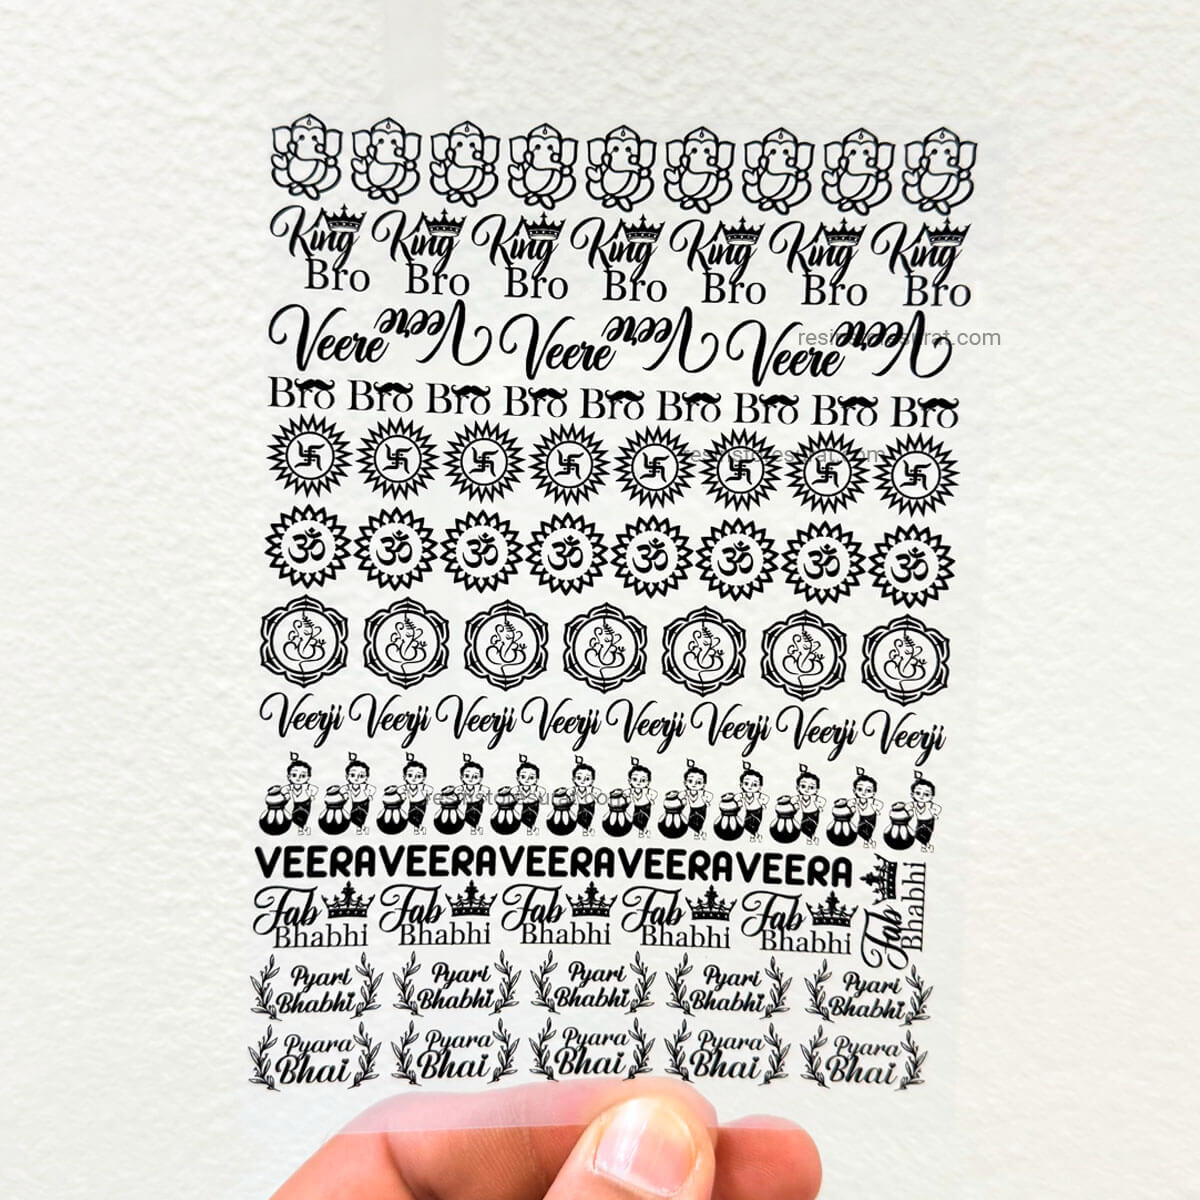 King King King King King King King
Bro Bro Bro Bro Bro Bro Bro
Veere Veere Veere Veere Veere Veere
resinstoresurat.com
Bro Bro Bro Bro Bro Bro Bro Bro Bro
resinstoresurat.com
ॐ ॐ ॐ ॐ ॐ ॐ ॐ ॐ
Veerji Veerji Veerji Veerji Veerji Veerji Veerji Veerji
resinstoresurat.com
VEERA VEERA VEERA VEERA VEERA
Fab Fab Fab Fab Fab Fab
Bhabhi Bhabhi Bhabhi Bhabhi Bhabhi Bhabhi
Pyari Pyari Pyari Pyari Pyari
Bhabhi Bhabhi Bhabhi Bhabhi Bhabhi
Pyara Pyara Pyara Pyara Pyara
Bhai Bhai Bhai Bhai Bhai